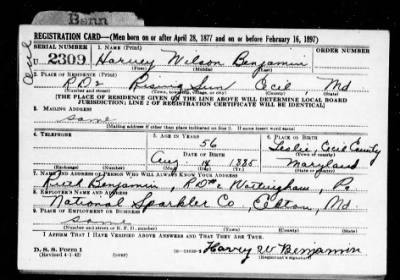 Benn
Cecil
REGISTRATION CARD—(Men born on or after April 28, 1877 and on or before February 16, 1897)
SERIAL NUMBER
1. NAME (Print)
ORDER NUMBER
U 2309
Harvey Wilson Benjamin
(First) (Middle) (Last)
2. PLACE OF RESIDENCE (Print)
RD2 Rising Sun Cecil, Md
(Number and street) (Town, township, village, or city) (County) (State)
[THE PLACE OF RESIDENCE GIVEN ON THE LINE ABOVE WILL DETERMINE LOCAL BOARD
JURISDICTION; LINE 2 OF REGISTRATION CERTIFICATE WILL BE IDENTICAL]
3. MAILING ADDRESS
same
[Mailing address if other than place indicated on line 2. If same insert word same]
4. TELEPHONE
5. AGE IN YEARS
56
6. PLACE OF BIRTH
Leslie, Cecil County
(Town or county)
DATE OF BIRTH
Aug 1885
Maryland
(Exchange) (Number)
(Mo.) (Day) (Yr.)
(State or country)
7. NAME AND ADDRESS OF PERSON WHO WILL ALWAYS KNOW YOUR ADDRESS
Benjamin, RD2 Nottingham, Pa
8. EMPLOYER'S NAME AND ADDRESS
National Sparkler Co Elkton, Md.
9. PLACE OF EMPLOYMENT OR BUSINESS
same
(Number and street or R. F. D. number) (Town) (County) (State)
I AFFIRM THAT I HAVE VERIFIED ABOVE ANSWERS AND THAT THEY ARE TRUE.
D. S. S. Form 1
(Revised 4-1-42)
Harvey W Benjamin
(Registrant's signature)